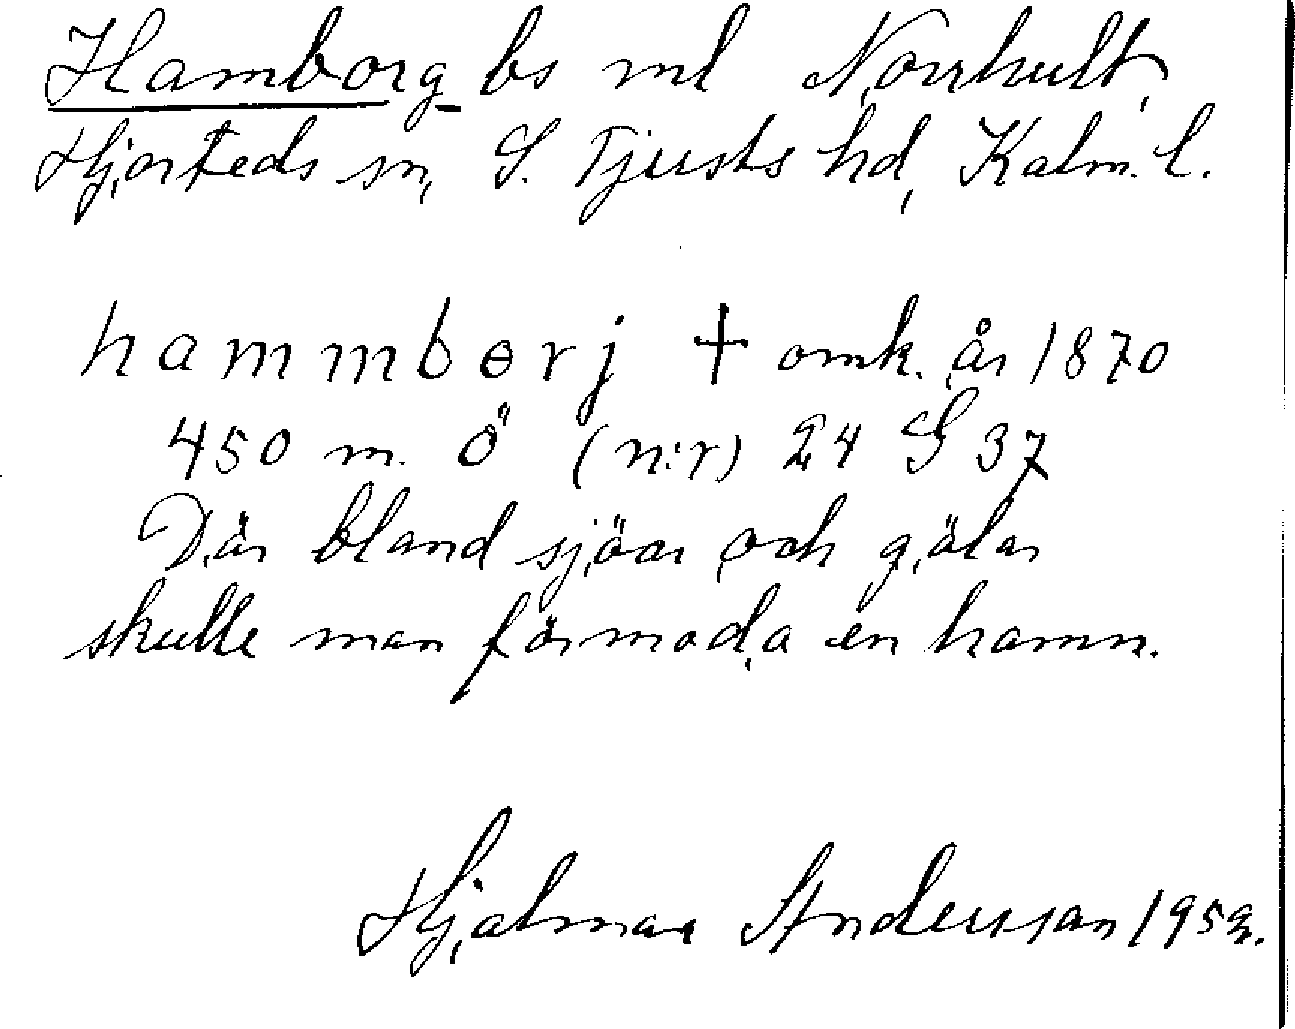 Hamborg bs ml Norrhult,
Hjorteds sn, S. Tjusts hd, Kalm. l.
hammborj † omk. år 1870
450 m. Ö (n:r) 24 S 37
Där bland sjöar och gölar
skulle man förmoda en hamn.
Hjalmar Andersson 1959.